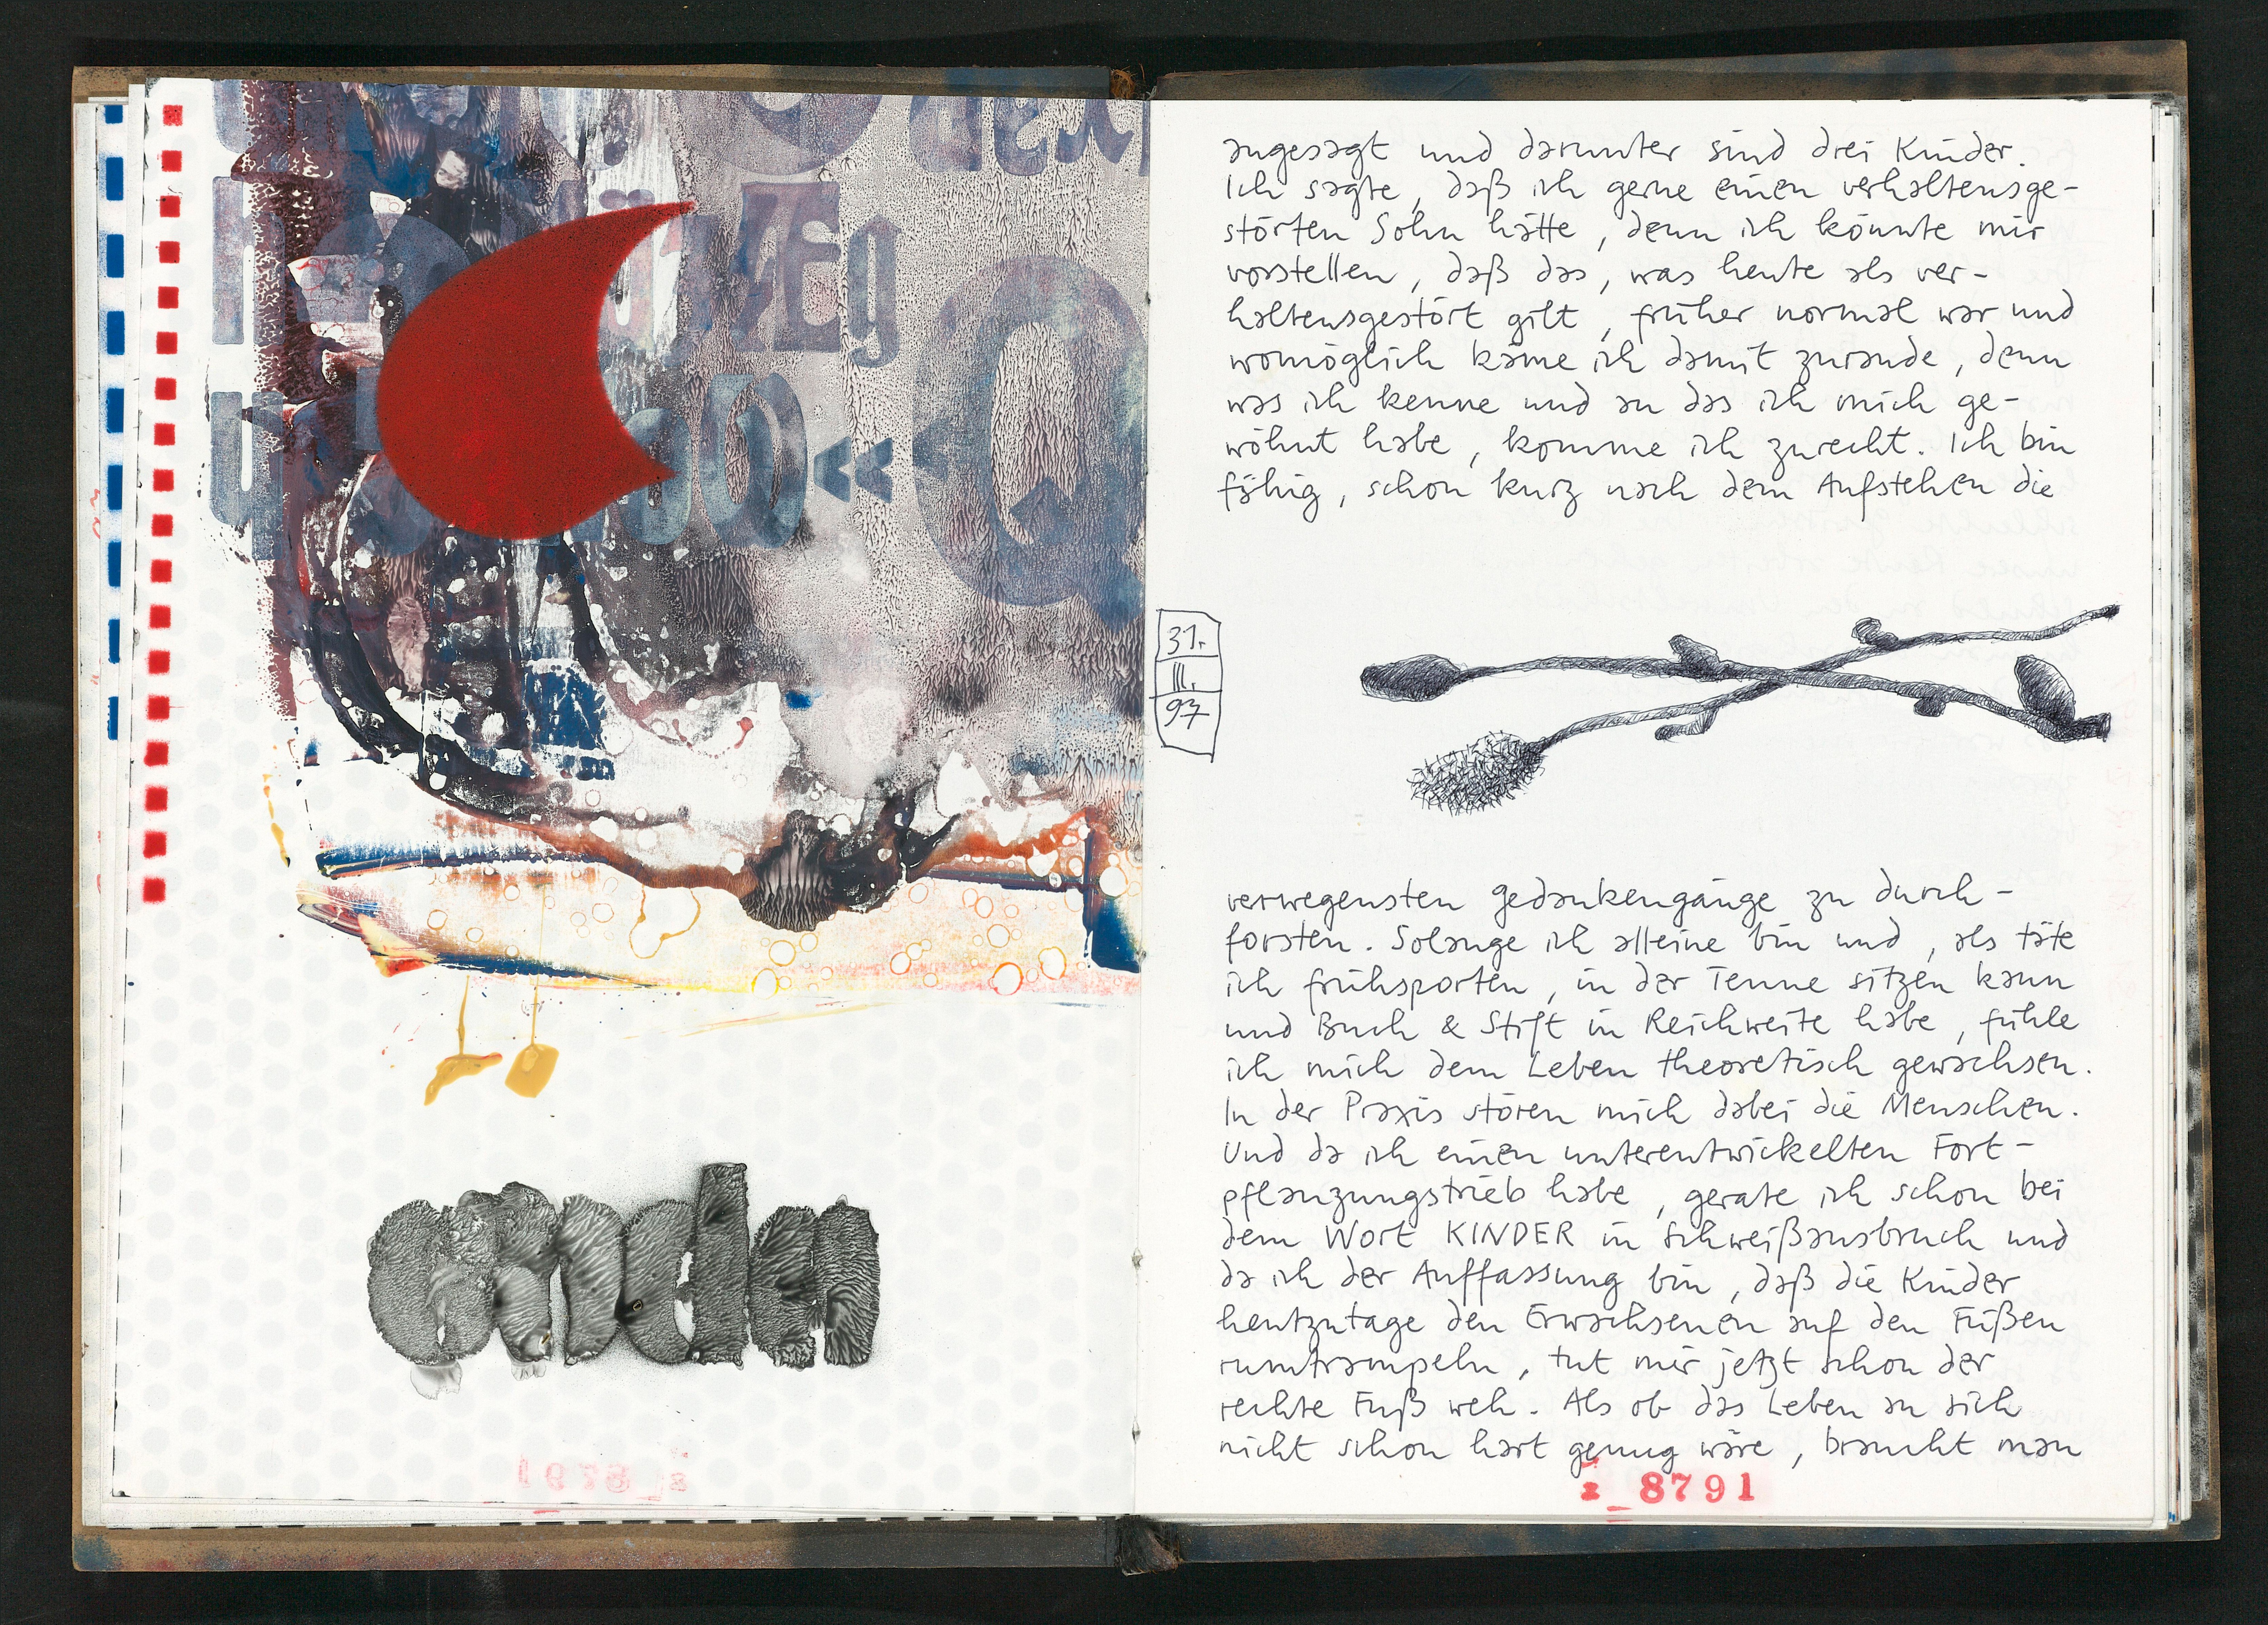 Æg
«
Q
31.
III.
97
angesagt und darunter sind drei Kinder.
Ich sagte, daß ich gerne einen verhaltensge-
störten Sohn hätte, denn ich könnte mir
vorstellen, daß das, was heute als ver-
haltensgestört gilt, früher normal war und
womöglich käme ich damit zurande, denn
was ich kenne und an das ich mich ge-
wöhnt habe, komme ich zurecht. Ich bin
fähig, schon kurz nach dem Aufstehen die
verwegensten Gedankengänge zu durch-
forsten. Solange ich alleine bin und, als täte
ich frühsporten, in der Tenne sitzen kann
und Buch & Stift in Reichweite habe, fühle
ich mich dem Leben theoretisch gewachsen.
In der Praxis stören mich dabei die Menschen.
Und da ich einen unterentwickelten Fort-
pflanzungstrieb habe, gerate ich schon bei
dem Wort KINDER in Schweißausbruch und
da ich der Auffassung bin, daß die Kinder
heutzutage den Erwachsenen auf den Füßen
rumtrampeln, tut mir jetzt schon der
rechte Fuß weh. Als ob das Leben an sich
nicht schon hart genug wäre, braucht man
z_8791